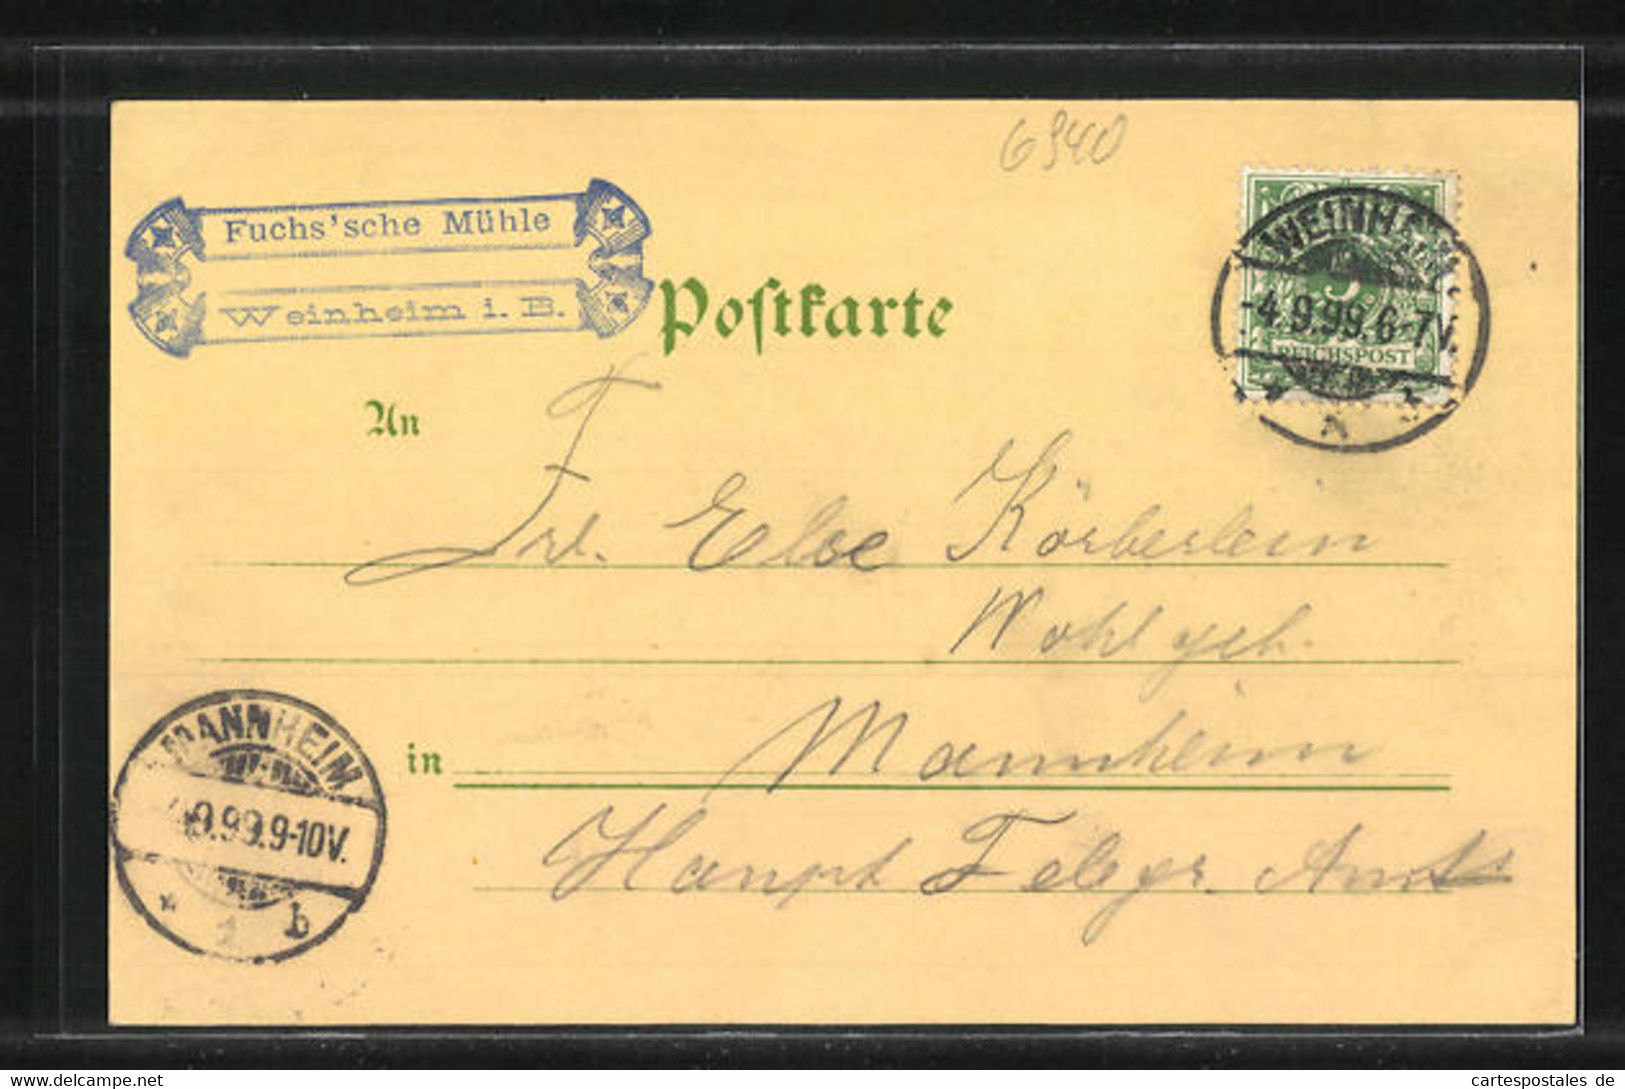 6940
Fuchs'sche Mühle
Weinheim i. B.
Postkarte
WEINHEIM
-4.9.99.6-7V.
5
REICHSPOST
An
Frl. Else Körberlein
Wohlgeb.
in Mannheim
Haupt Telegr. Amt
MANNHEIM
4.9.99.9-10V.
1 b
www.delcampe.net
cartespostales de